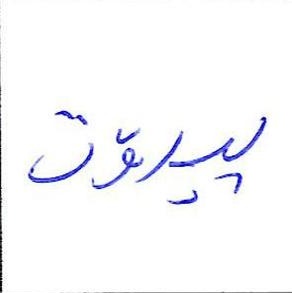 پیرۆت